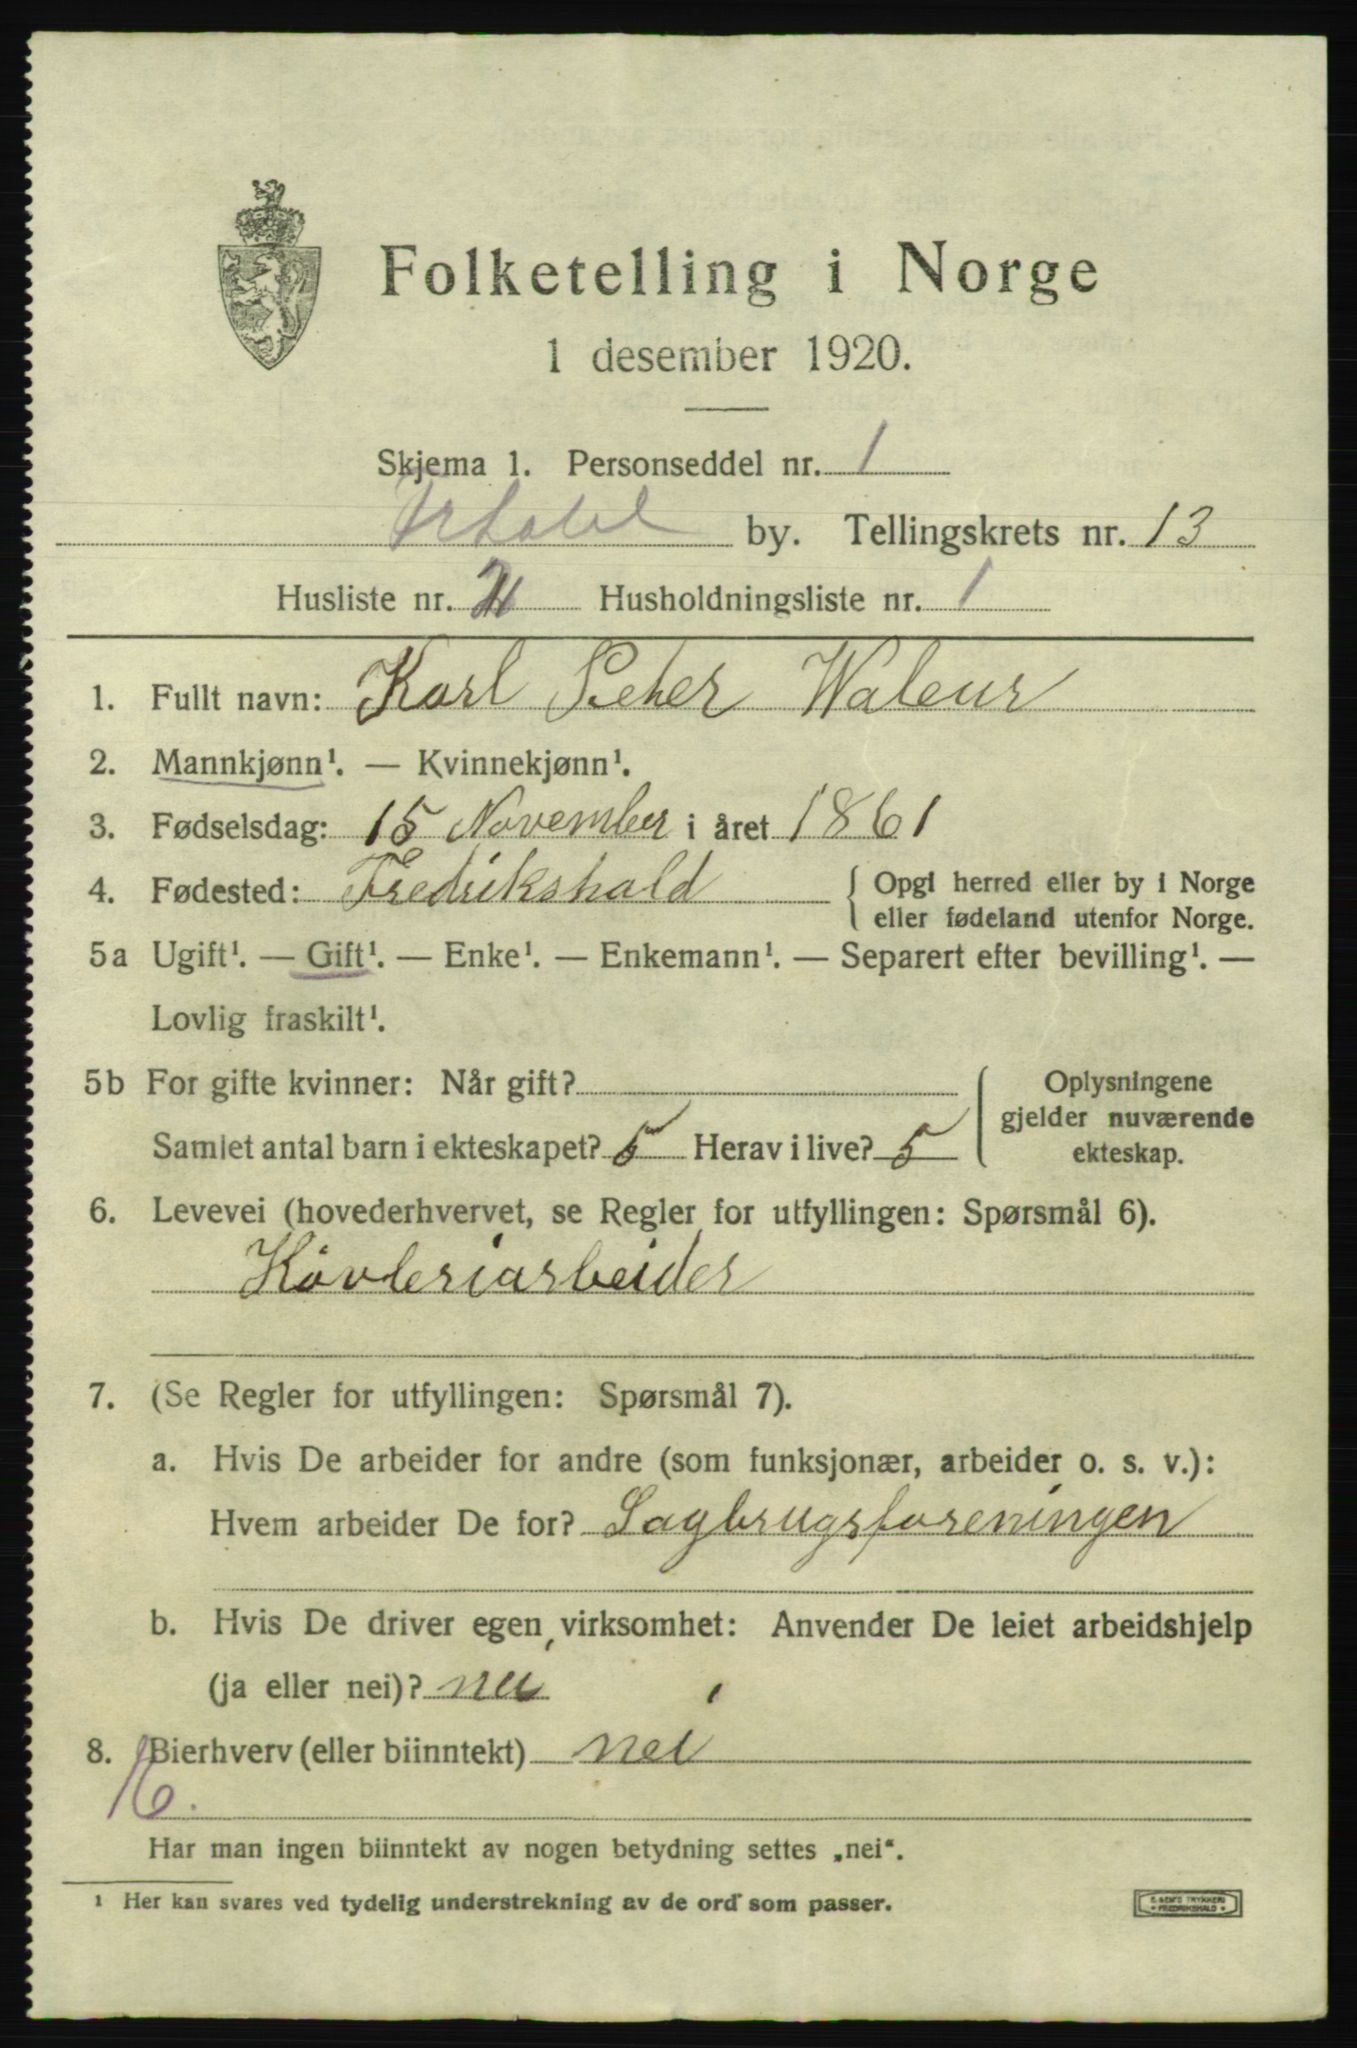 Folketelling i Norge
1 desember 1920.
Skjema 1. Personseddel nr. 1
Frhald by. Tellingskrets nr. 13
Husliste nr. Husholdningsliste nr. 1
1. Fullt navn: Karl Peter Waleur
2. Mannkjønn¹. — Kvinnekjønn¹.
3. Fødselsdag: 15 November i året 1861
4. Fødested: Fredrikshald { Opgi herred eller by i Norge
eller fødeland utenfor Norge.
5a Ugift¹. — Gift¹. — Enke¹. — Enkemann¹. — Separert efter bevilling¹. —
Lovlig fraskilt¹.
5b For gifte kvinner: Når gift? { Oplysningene
gjelder nuværende
Samlet antal barn i ekteskapet? 5 Herav i live? 5 ekteskap.
6. Levevei (hovederhvervet, se Regler for utfyllingen: Spørsmål 6).
Hövleriarbeider
7. (Se Regler for utfyllingen: Spørsmål 7).
a. Hvis De arbeider for andre (som funksjonær, arbeider o. s. v.):
Hvem arbeider De for? Sagbrugsforeningen
b. Hvis De driver egen virksomhet: Anvender De leiet arbeidshjelp
(ja eller nei)? nei
8. Bierhverv (eller biinntekt) nei
16.
Har man ingen biinntekt av nogen betydning settes „nei“.
¹ Her kan svares ved tydelig understrekning av de ord som passer.
E. SEM'S TRYKKERI
FREDRIKSHALD